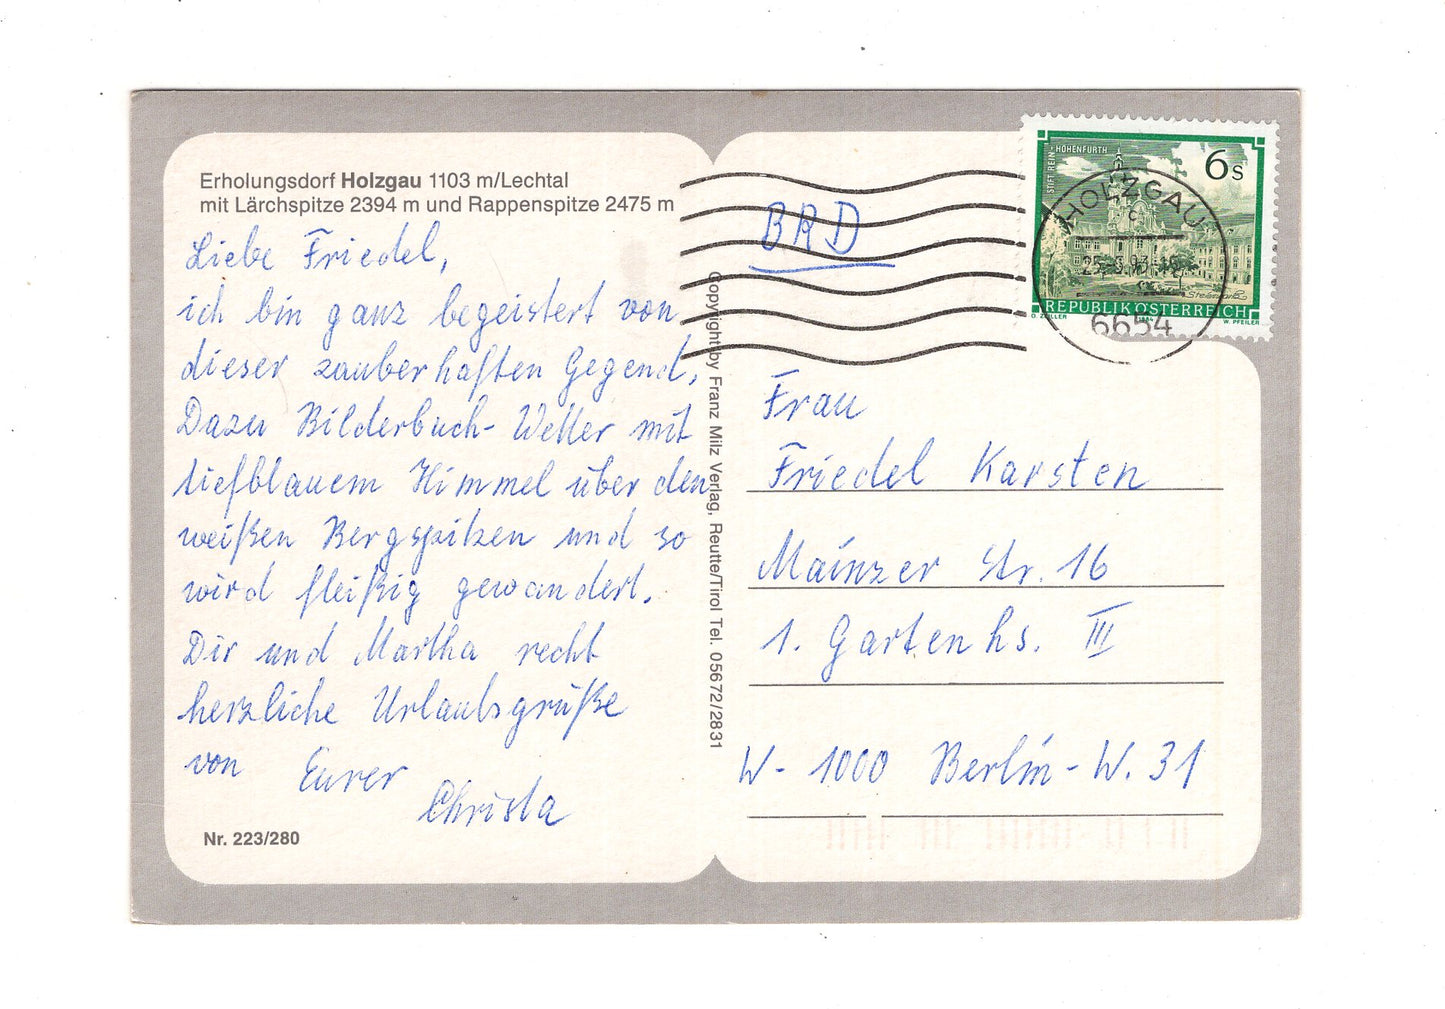 Erholungsdorf Holzgau 1103 m/Lechtal
mit Lärchspitze 2394 m und Rappenspitze 2475 m
Liebe Friedel,
ich bin ganz begeistert von
dieser zauberhaften Gegend,
Dazu Bilderbuch-Wetter mit
tiefblauem Himmel über den
weißen Bergspitzen und so
wird fleißig gewandert.
Dir und Martha recht
herzliche Urlaubsgrüße
von Eurer
Christa
Nr. 223/280
Copyright by Franz Milz Verlag, Reutte/Tirol Tel. 05672/2831
BRD
STIFT REIN-HOHENFURTH
6 S
REPUBLIK ÖSTERREICH
1984
W. PFEILER
HOLZGAU
6654
Frau
Friedel Karsten
Mainzer Str. 16
1. Gartenhs. III
W-1000 Berlin-W. 31